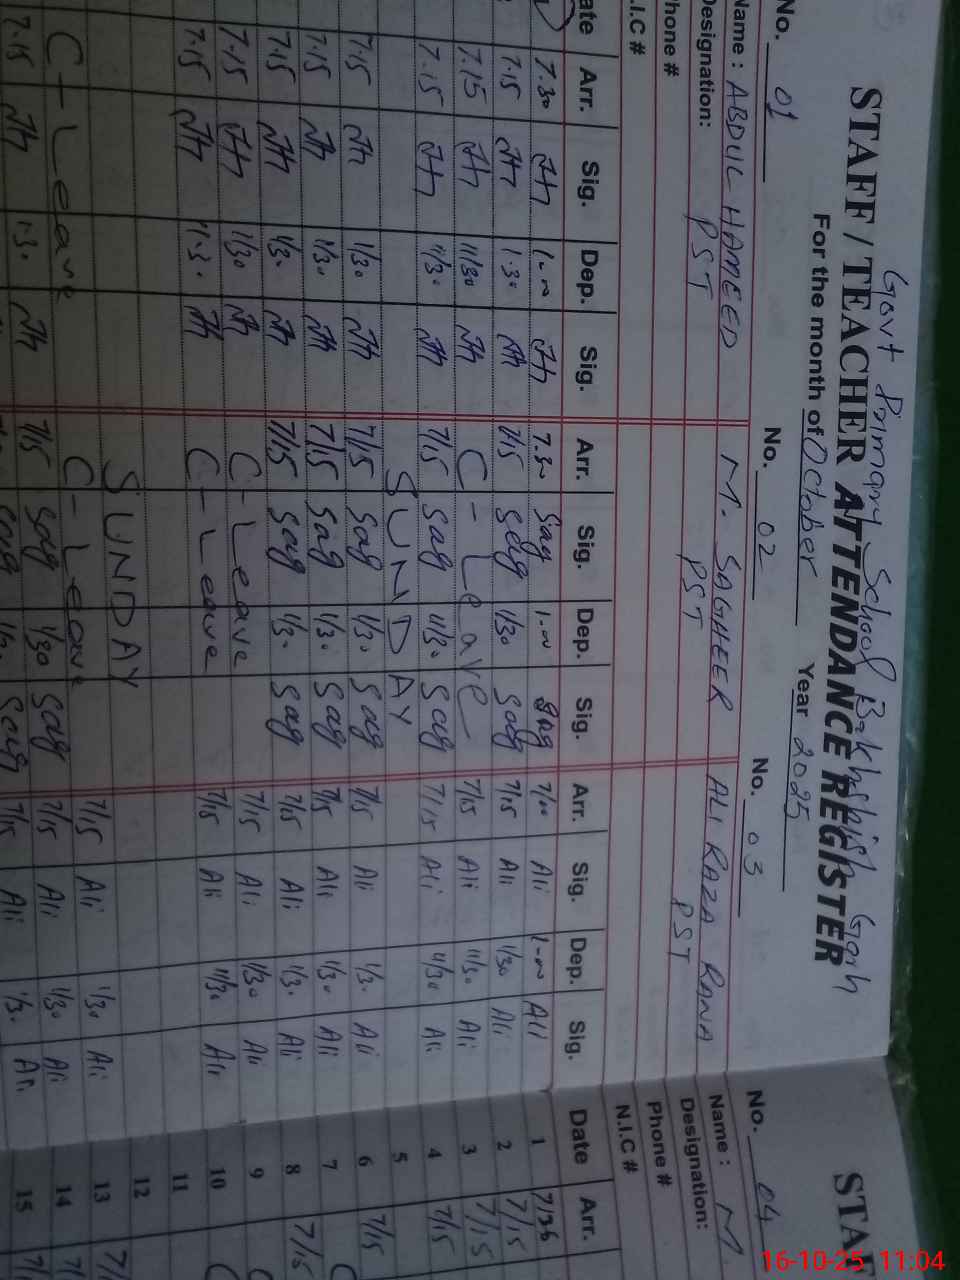 Govt Primary School Bakhshish Garh
STAFF / TEACHER ATTENDANCE REGISTER
For the month of October Year 2025
No. 01 No. 02 No. 03
Name : ABDUL HAMEED M. SAGHEER ALI RAZA RANA
Designation: PST PST PST
Phone #
N.I.C #
Arr. Sig. Dep. Sig. Arr. Sig. Dep. Sig. Arr. Sig. Dep. Sig.
7.30 7.30 Sag Sag 7/00 Ali Ali
7.15 1.30 7/15 Sag 1/30 Sag 7/15 Ali 1/30 Ali
7.15 11/30 C - Leave 7/15 Ali 11/30 Ali
7.15 11/30 7/15 Sag 11/30 Sag 7/15 Ali 11/30 Ali
SUNDAY
7.15 1/30 7/15 Sag 1/30 Sag 7/15 Ali 1/30 Ali
7.15 1/30 7/15 Sag 1/30 Sag 7/15 Ali 1/30 Ali
7.15 1/30 7/15 Sag 1/30 Sag 7/15 Ali 1/30 Ali
7.15 1/30 C - Leave 7/15 Ali 1/30 Ali
7.15 11.30 C - Leave 7/15 Ali 11/30 Ali
SUNDAY
C - Leave C - Leave 7/15 Ali 1/30 Ali
7.15 1.30 7/15 Sag 1/30 Sag 7/15 Ali 1/30 Ali
7/15 Ali 1/30
STA
No. 04
Name : M.
Designation:
Phone #
N.I.C #
Date Arr.
1
2 7/15
3 7/15
4 7/15
5
6 7/15
7
8 7/15
9
10
11
12
13
14
15
16-10-25 11:04